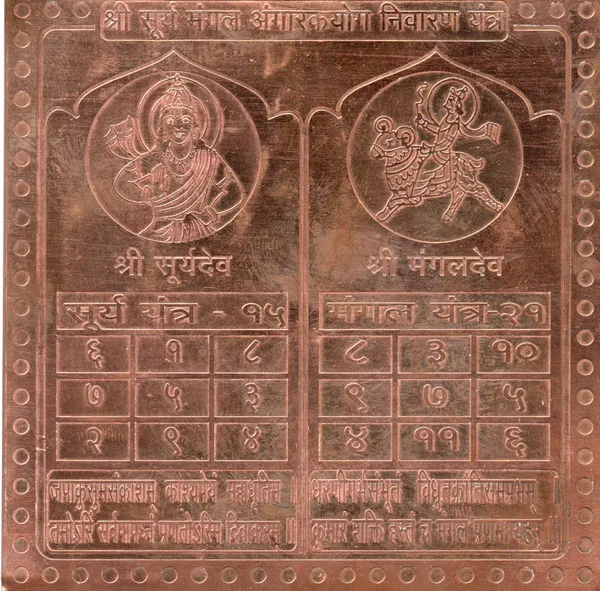 श्री सूर्य मंगल अंगारकयोग निवारण यंत्र
श्री सूर्यदेव
सूर्य यंत्र - १५
६ १ ८
७ ५ ३
२ ९ ४
जपाकुसुमसंकाशम काश्यपेयं महाद्युतिम ।
तमोऽरि सर्वपापघ्नं प्रणतोऽस्मि दिवाकरम् ॥
श्री मंगलदेव
मंगल यंत्र-२१
८ ३ १०
९ ७ ५
४ ११ ६
धरणीगर्भसंभूतं विद्युतकांतिसमप्रभम् ।
कुमारं शक्ति हस्तं च मंगलं प्रणमाम्यहम् ॥